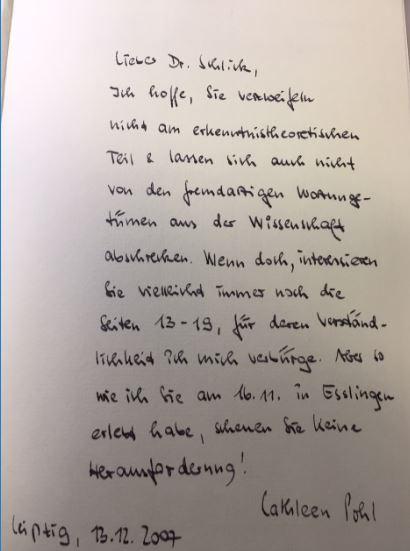 Lieber Dr. Schlick,
Ich hoffe, Sie verzweifeln
nicht am erkenntnistheoretischen
Teil & lassen sich auch nicht
von den fremdartigen Wortunge-
tümen aus der Wissenschaft
abschrecken. Wenn doch, interessieren
Sie vielleicht immer noch die
Seiten 13-19, für deren Verständ-
lichkeit ich mich verbürge. Aber so
wie ich Sie am 16.11. in Esslingen
erlebt habe, scheuen Sie keine
Herausforderung!
Cathleen Pohl
Leipzig, 13.12.2007